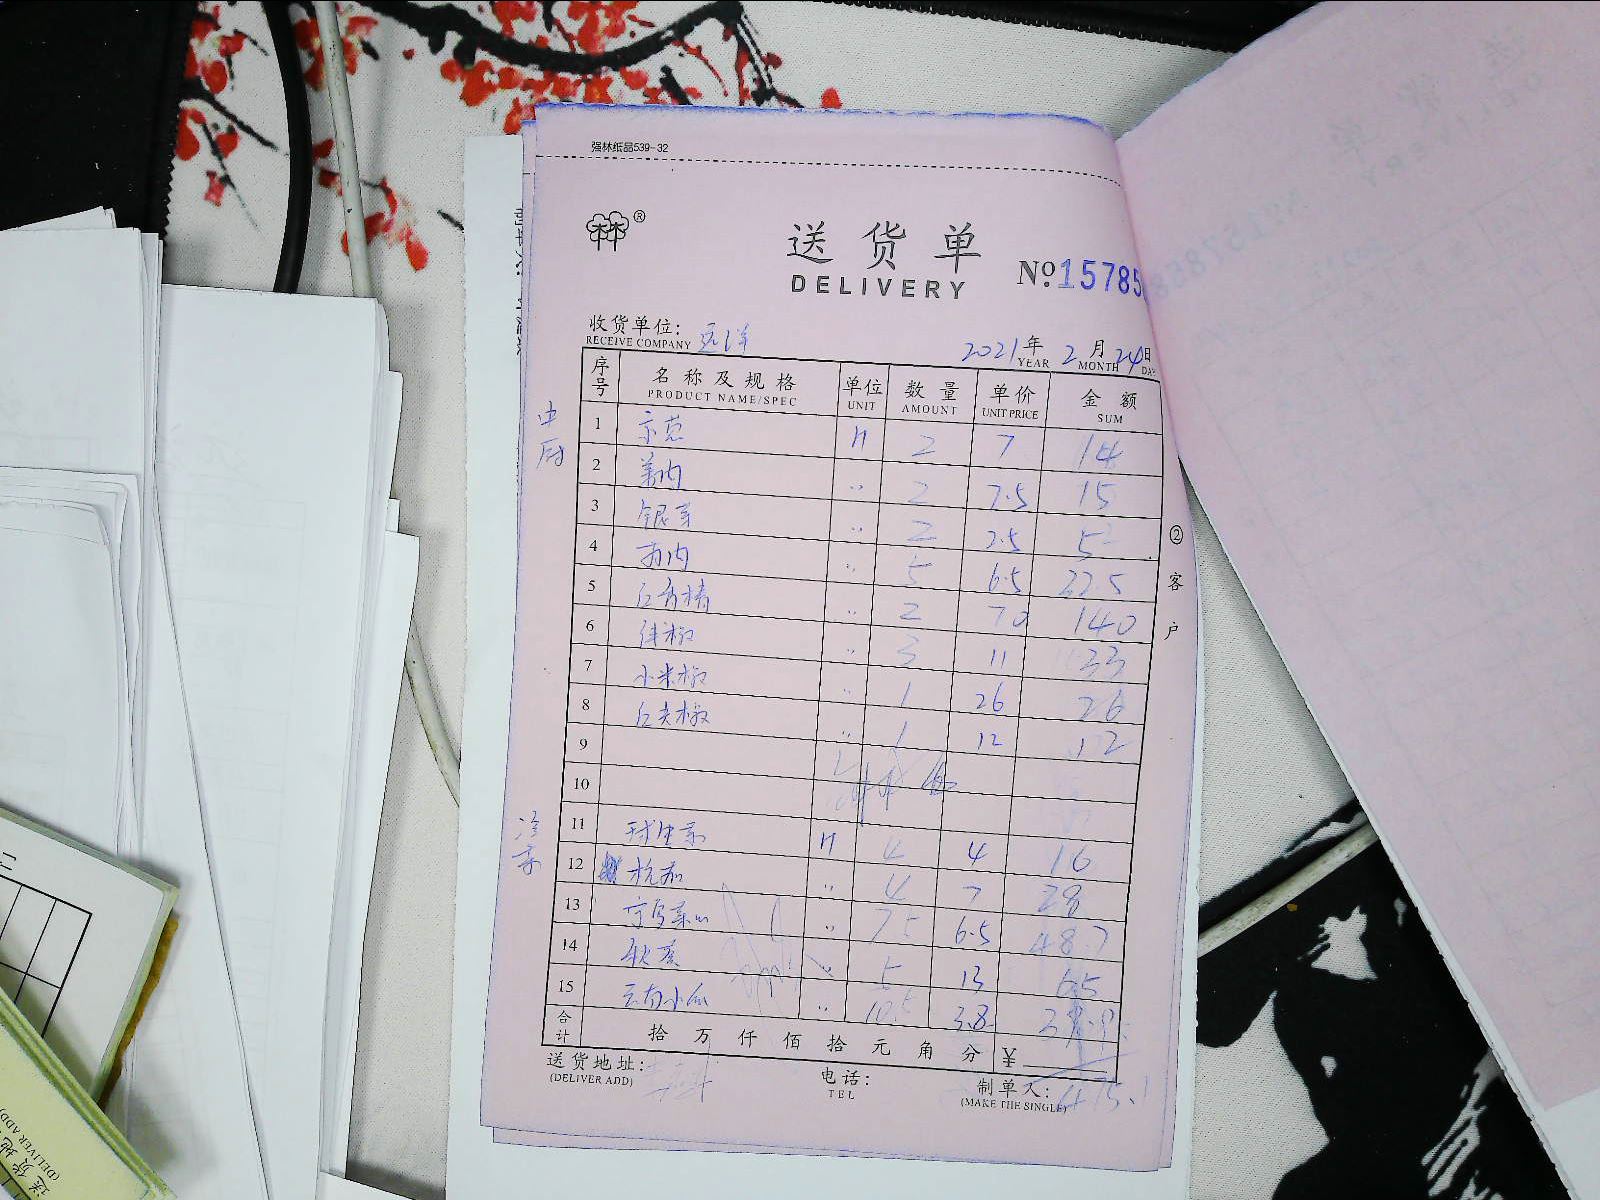 强林纸品539-32
送货单
DELIVERY
№15785
收货单位: 远洋
RECEIVE COMPANY
2021年 2月 24日
YEAR MONTH DA
序号 名称及规格 单位 数量 单价 金额
PRODUCT NAME/SPEC UNIT AMOUNT UNIT PRICE SUM
中厨
1 京葱 斤 2 7 14
2 姜肉 〃 2 7.5 15
3 银芽 〃 2 2.5 5
4 〃 5 6.5 22.5
5 〃 2 70 140
6 〃 3 11 33
7 小米椒 〃 1 26 26
8 红尖椒 〃 1 12 12
9
10
冷菜
11 球生菜 斤 4 4 16
12 杭茄 〃 4 7 28
13 〃 7.5 6.5 48.7
14 秋葵 〃 5 13 65
15 云南小瓜 〃 10.5 3.8
合计 拾万仟佰拾元角分 ¥
475.1
送货地址:
(DELIVER ADD)
电话:
TEL
制单人:
(MAKE THE SINGLE)
②客户
送货地
(DELIVER ADD)